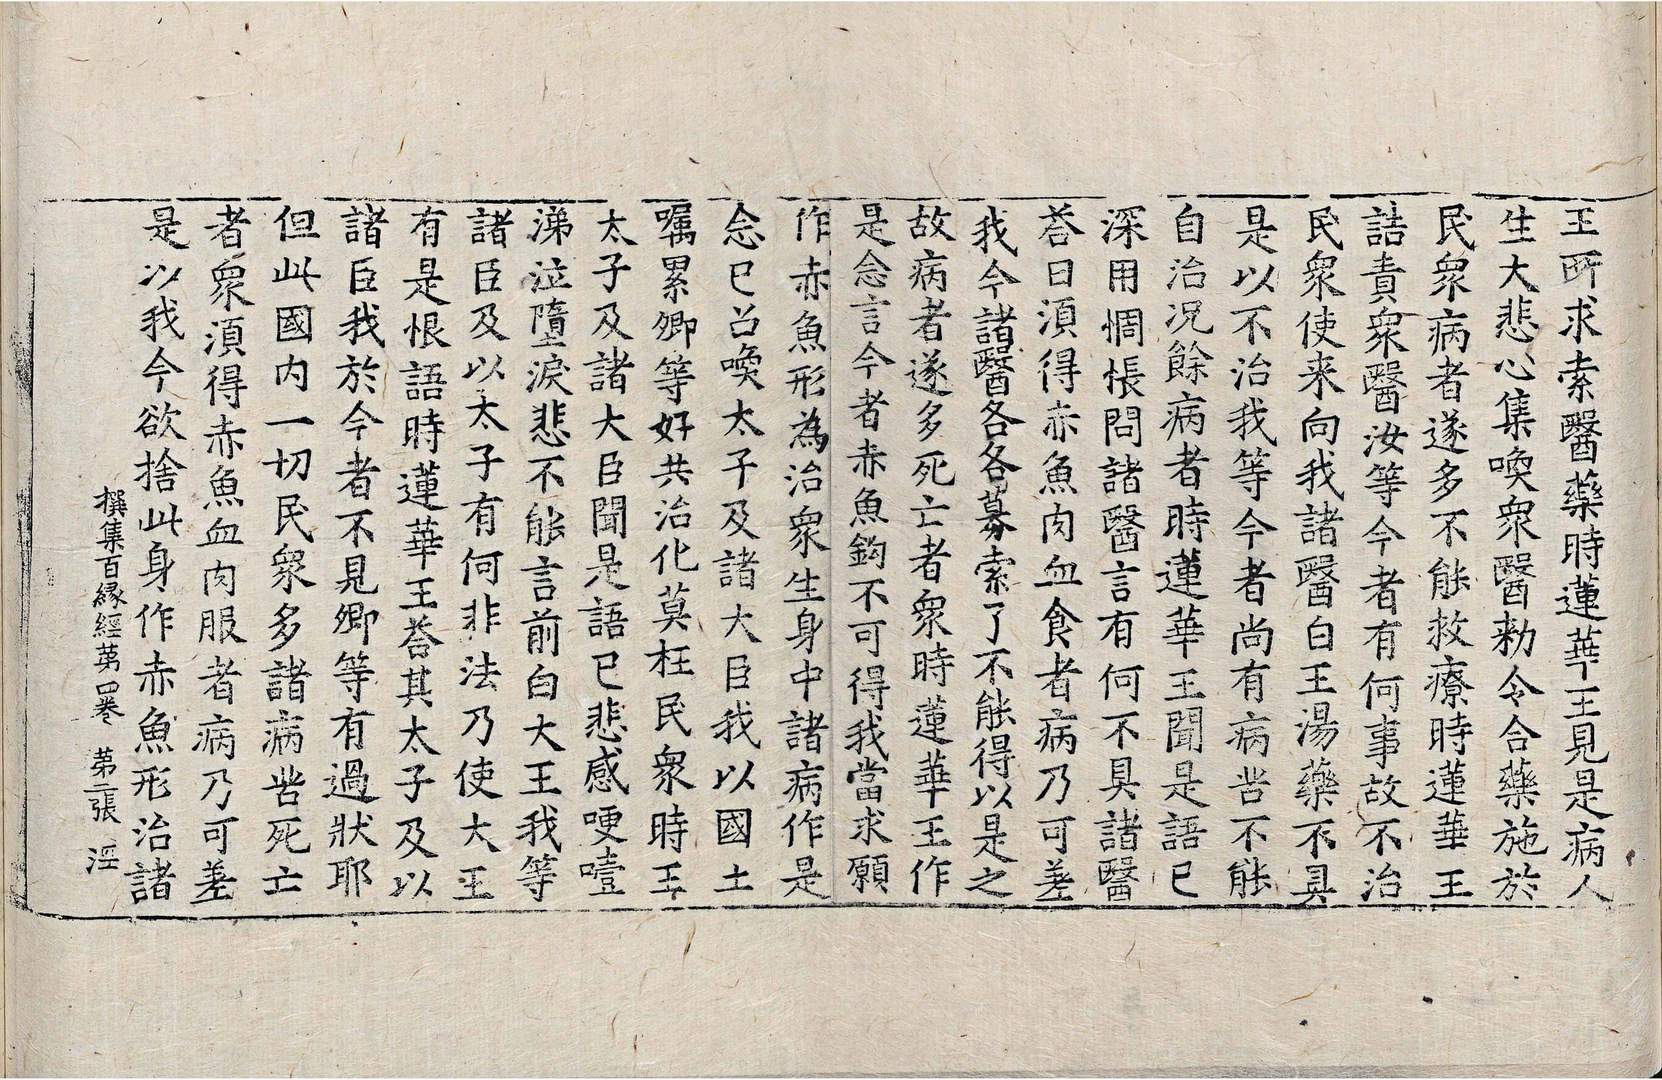 王所求索醫藥時蓮華王見是病人
生大悲心集喚衆醫勑令合藥施於
民衆病者遂多不能救療時蓮華王
詰責衆醫汝等今者有何事故不治
民衆使来向我諸醫白王湯藥不具
是以不治我等今者尚有病苦不能
自治況餘病者時蓮華王聞是語已
深用惆悵問諸醫言有何不具諸醫
荅曰湏得赤魚肉血食者病乃可差
我今諸醫各各募索了不能得以是之
故病者遂多死亡者衆時蓮華王作
是念言今者赤魚鈎不可得我當求願
作赤魚形為治衆生身中諸病作是
念已召喚太子及諸大臣我以國土
囑累卿等好共治化莫枉民衆時王
太子及諸大臣聞是語已悲感哽噎
涕泣墮淚悲不能言前白大王我等
諸臣及以太子有何非法乃使大王
有是恨語時蓮華王荅其太子及以
諸臣我於今者不見卿等有過狀耶
但此國内一切民衆多諸病苦死亡
者衆湏得赤魚血肉服者病乃可差
是以我今欲捨此身作赤魚形治諸
撰集百緣經萬四卷 第二張 淫